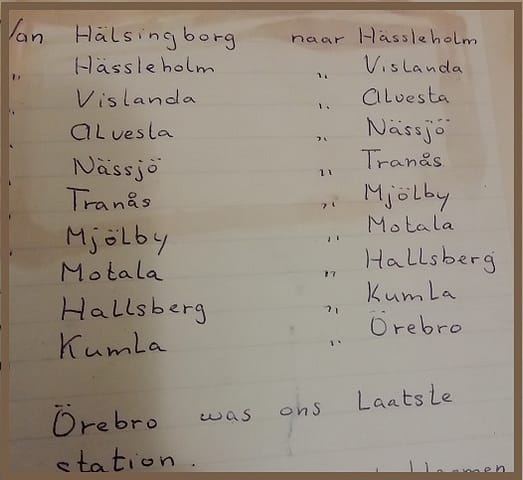 Van Hälsingborg naar Hässleholm
,, Hässleholm ,, Vislanda
,, Vislanda ,, Alvesta
,, Alvesta ,, Nässjö
,, Nässjö ,, Tranås
,, Tranås ,, Mjölby
,, Mjölby ,, Motala
,, Motala ,, Hallsberg
,, Hallsberg ,, Kumla
,, Kumla ,, Örebro
Örebro was ons Laatste
station.